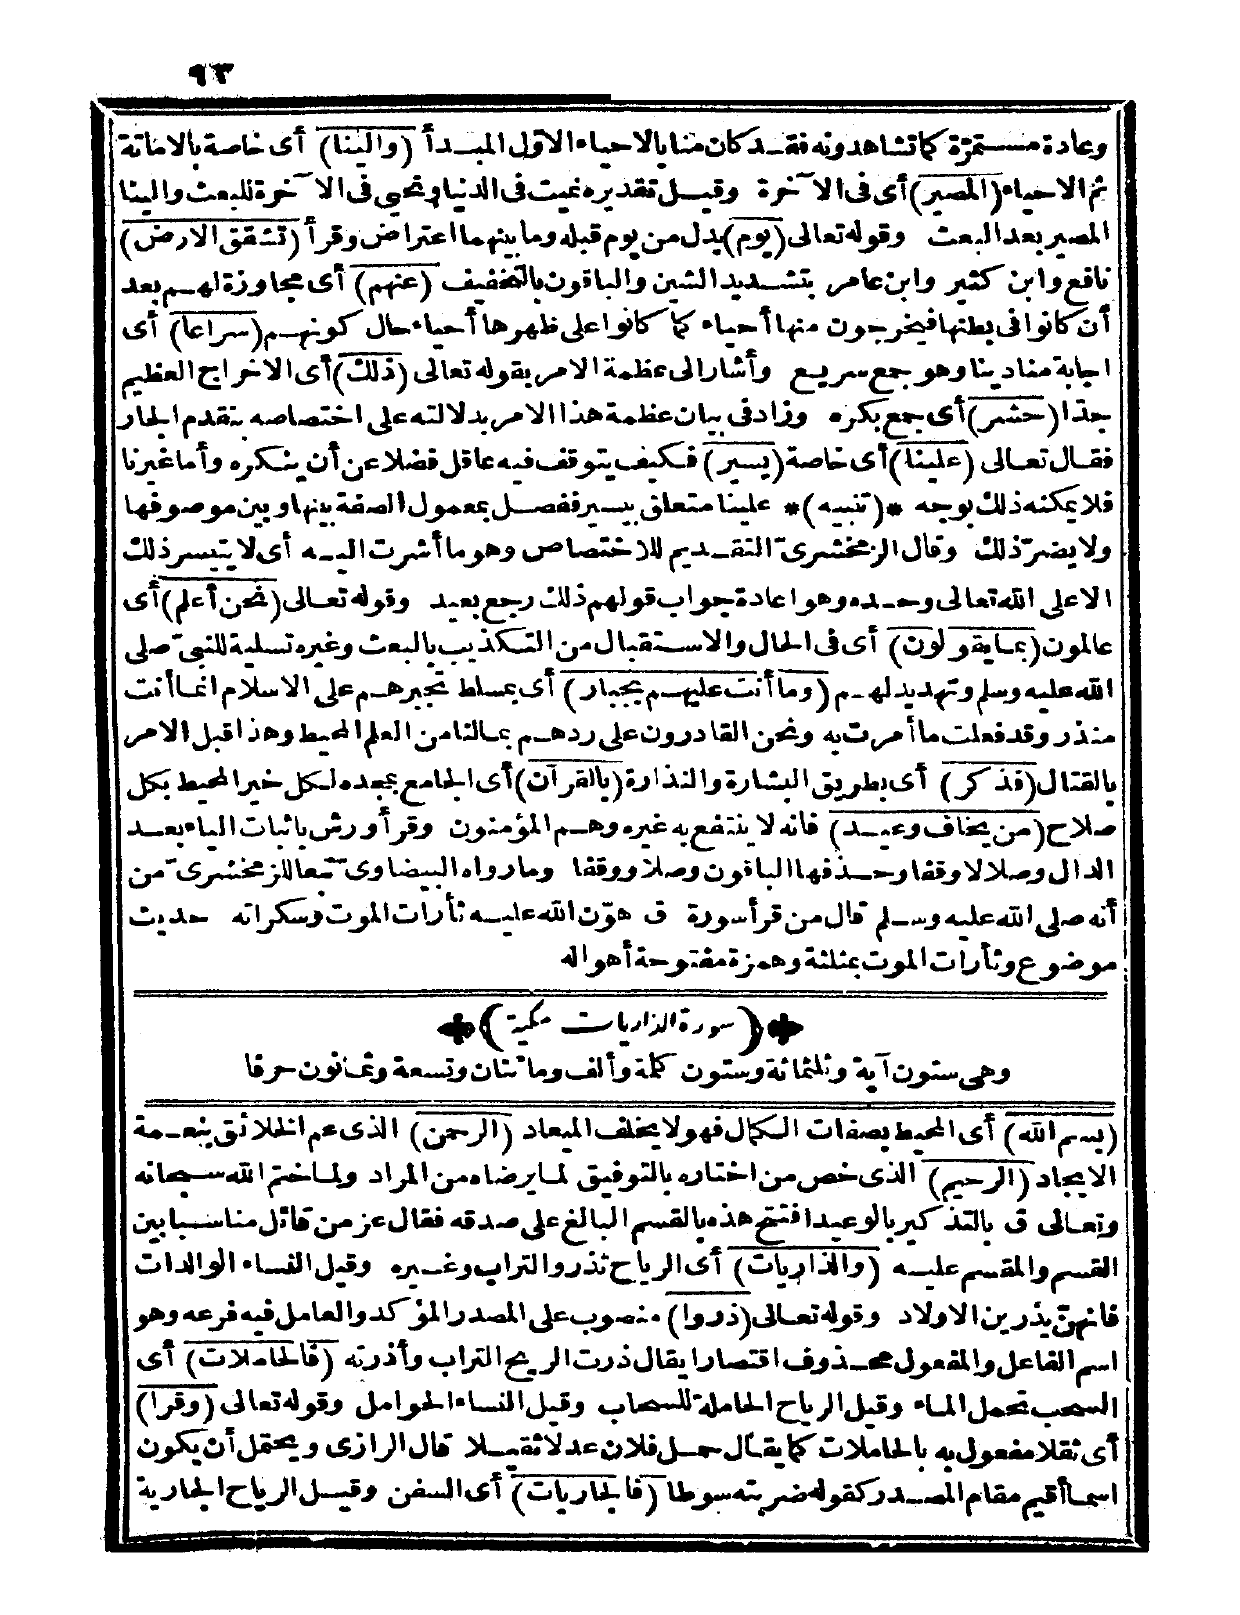 ٩٣
وعادة مستمرّة كما تشاهدونه فقد كان منا بالاحياء الاوّل المبدأ (والينا) أى خاصة بالاماتة
ثم الاحياء (المصير) أى فى الآخرة وقيل تقديره نميت فى الدنيا ونحيى فى الآخرة للبعث والينا
المصير بعد البعث وقوله تعالى (يوم) بدل من يوم قبله وما بينهما اعتراض وقرأ (تشقق الارض)
نافع وابن كثير وابن عامر بتشديد الشين والباقون بالتخفيف (عنهم) أى مجاوزة لهم بعد
أن كانوا فى بطنها فيخرجون منها أحياء كما كانوا على ظهورها أحياء حال كونهم (سراعا) أى
اجابة مناديناوهو جمع سريع وأشار الى عظمة الامر بقوله تعالى (ذلك) أى الاخراج العظيم
جدّا (حشر) أى جمع بكره وزاد فى بيان عظمة هذا الامر بدلالته على اختصاصه بتقدم الجار
فقال تعالى (علينا) أى خاصة (يسير) فكيف يتوقف فيه عاقل فضلا عن أن ينكره وأما غيرنا
فلا يمكنه ذلك بوجه *(تنبيه)* علينا متعلق بيسير ففصل بمعمول الصفة بينها وبين موصوفها
ولا يضرّ ذلك وقال الزمخشرىّ التقديم للاختصاص وهو ما أشرت اليه أى لا يتيسر ذلك
الا على الله تعالى وحده وهو اعادة جواب قولهم ذلك رجع بعيد وقوله تعالى (نحن أعلم) أى
عالمون (بما يقولون) أى فى الحال والاستقبال من التكذيب بالبعث وغيره تسلية للنبىّ صلى
الله عليه وسلم وتهديد لهم (وما أنت عليهم بجبار) أى بمسلط تجبرهم على الاسلام انما أنت
منذر وقد فعلت ما أمرت به ونحن القادرون على ردهم بمالنا من العلم المحيط وهذا قبل الامر
بالقتال (فذكر) أى بطريق البشارة والنذارة (بالقرآن) أى الجامع بمجده لكل خير المحيط بكل
صلاح (من يخاف وعيد) فانه لا ينتفع به غيره وهم المؤمنون وقرأ ورش باثبات الياء بعد
الدال وصلا لا وقفا وحذفها الباقون وصلا ووقفا وما رواه البيضاوىّ تبعا للزمخشرىّ من
أنه صلى الله عليه وسلم قال من قرأ سورة ق هوّن الله عليه ثأرات الموت وسكراته حديث
موضوع وثأرات الموت بمثلثة وهمزة مفتوحة أهواله
(سورة الذاريات مكية)
وهى ستون آية وثلثمائة وستون كلمة وألف ومائتان وتسعة وثمانون حرفا
(بسم الله) أى المحيط بصفات الكمال فهو لا يخلف الميعاد (الرحمن) الذى عم الخلائق بنعمة
الايجاد (الرحيم) الذى خص من اختاره بالتوفيق لما يرضاه من المراد ولما ختم الله سبحانه
وتعالى ق بالتذكير بالوعيد افتتح هذه بالقسم البالغ على صدقه فقال عز من قائل مناسبا بين
القسم والمقسم عليه (والذاريات) أى الرياح تذروا التراب وغيره وقيل النساء الوالدات
فانهنّ يذرين الاولاد وقوله تعالى (ذروا) منصوب على المصدر المؤكد والعامل فيه فرعه وهو
اسم الفاعل والمفعول محذوف اقتصارا يقال ذرت الريح التراب وأذرته (فالحاملات) أى
السحب تحمل الماء وقيل الرياح الحاملة للسحاب وقيل النساء الحوامل وقوله تعالى (وقرا)
أى ثقلا مفعول به بالحاملات كما يقال حمل فلان عدلا ثقيلا قال الرازى ويحتمل أن يكون
اسما أقيم مقام المصدر كقوله ضربته سوطا (فالجاريات) أى السفن وقيل الرياح الجارية